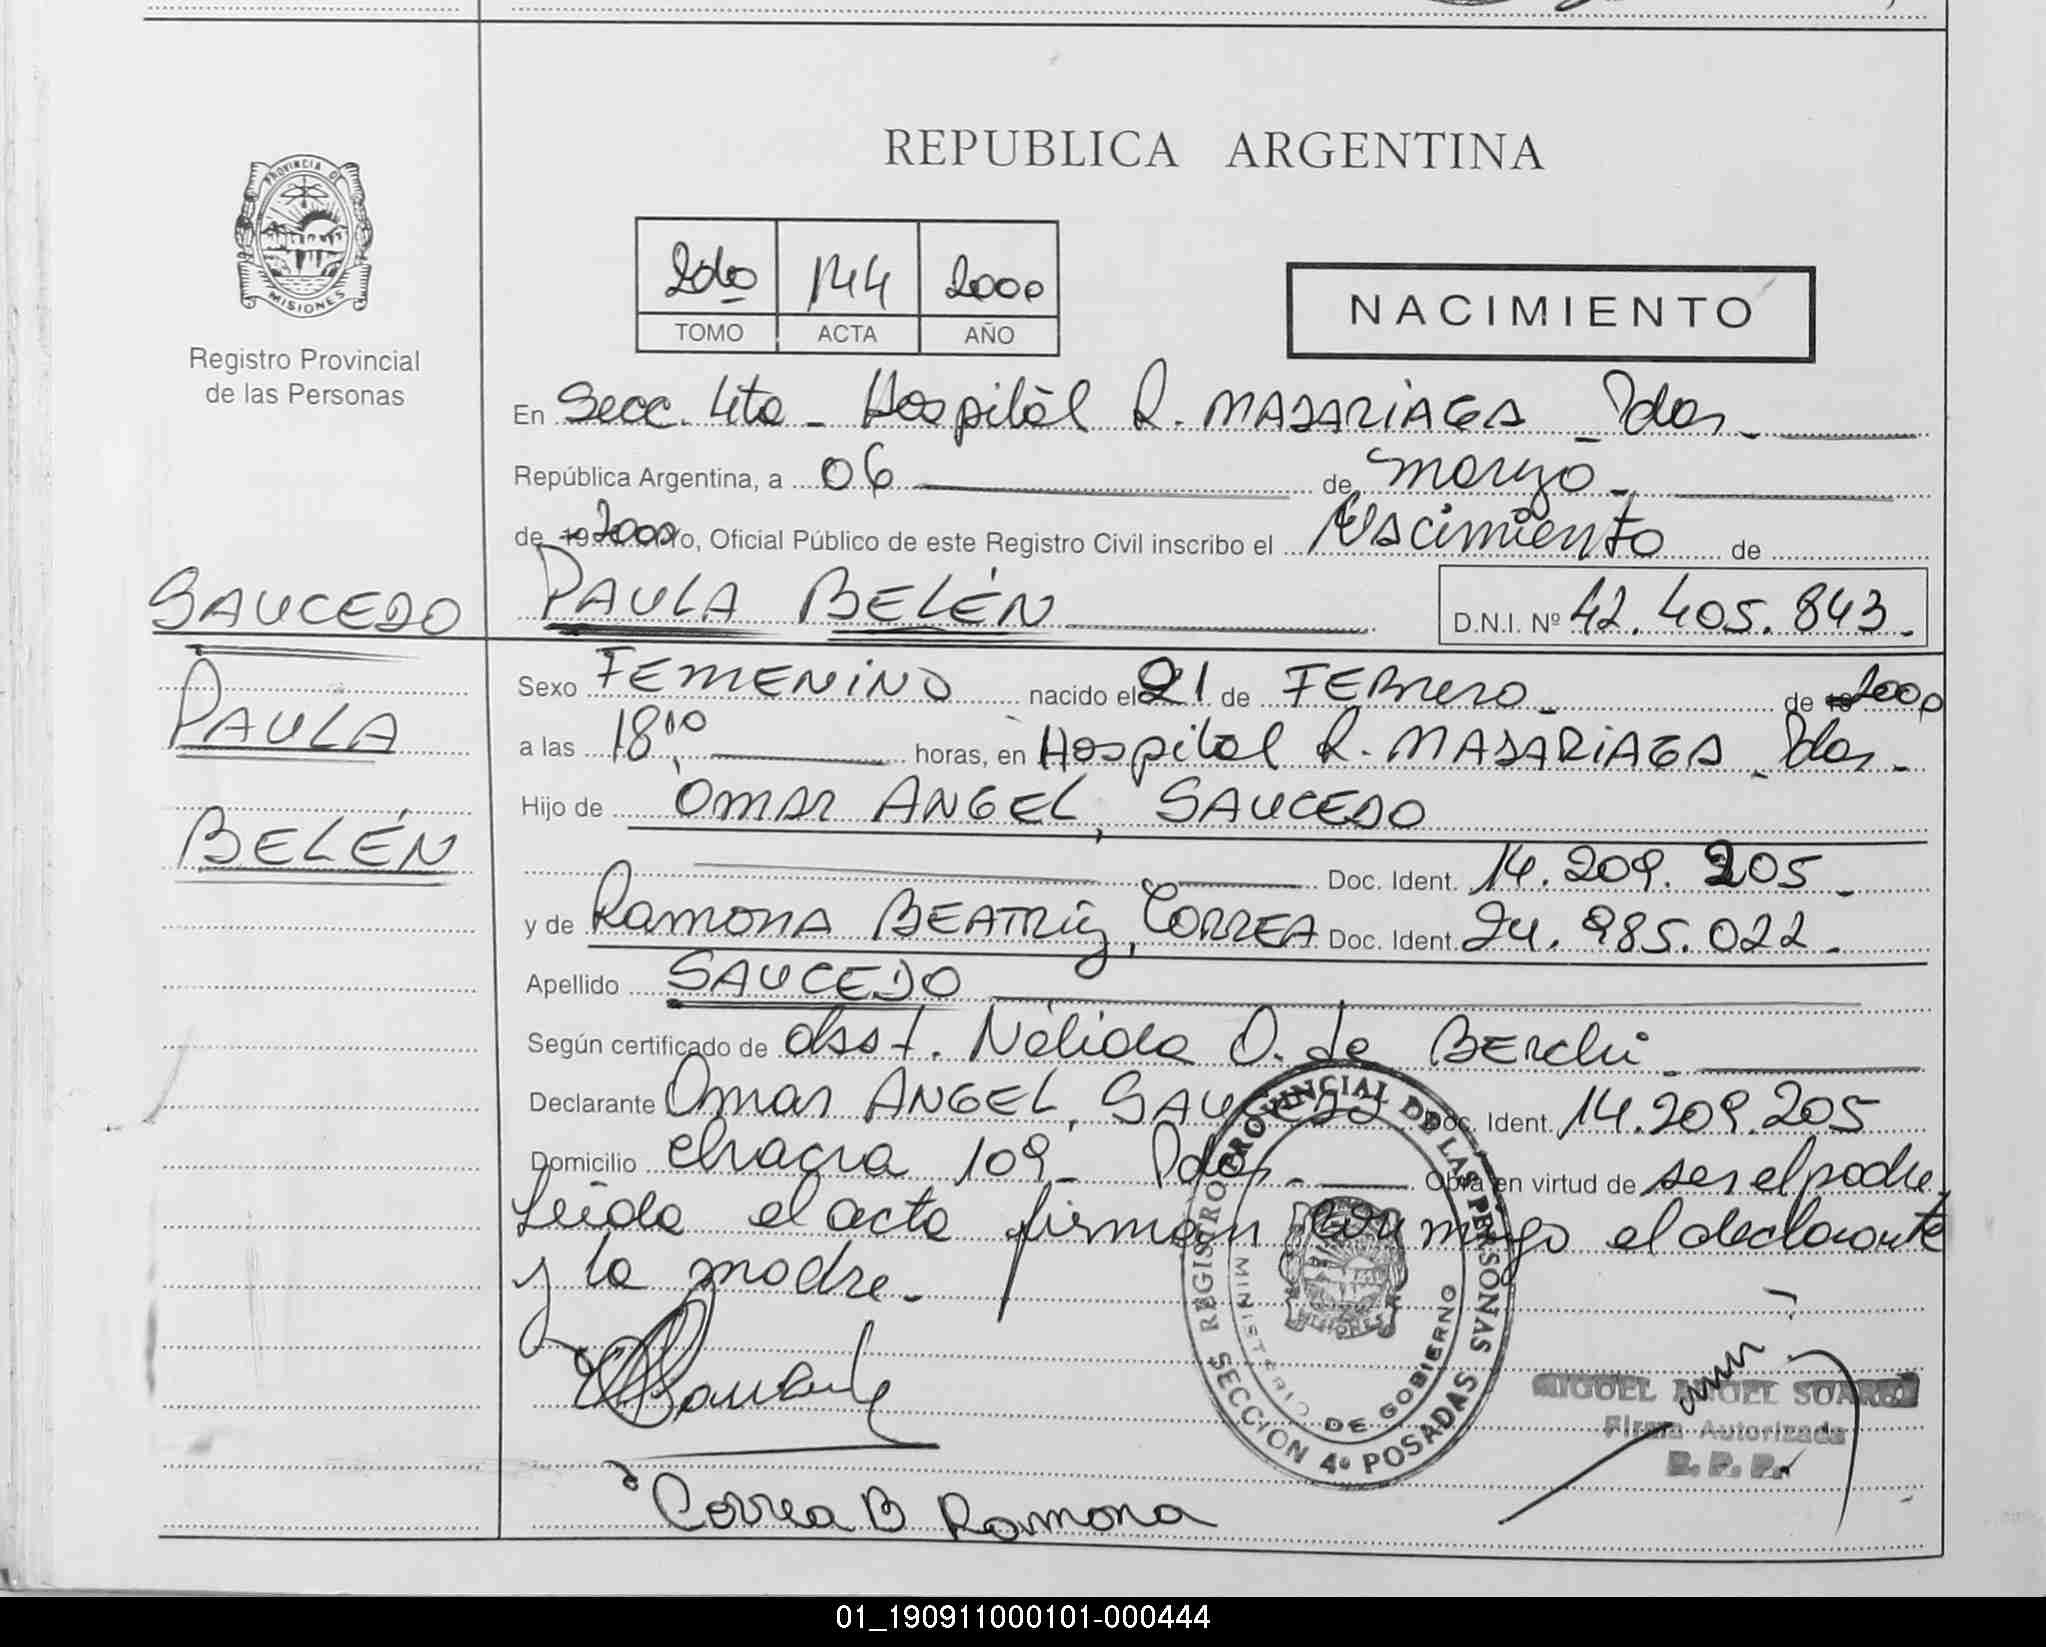 REPUBLICA ARGENTINA
PROVINCIA DE MISIONES
Registro Provincial
de las Personas
2do 144 2000
TOMO ACTA AÑO
NACIMIENTO
En Secc. 4ta - Hospital R. MADARIAGA - Pdas.
República Argentina, a 06 de marzo -
de 19 2000 Yo, Oficial Público de este Registro Civil inscribo el Nacimiento de
PAULA BELÉN D.N.I. Nº 42.405.843.
SAUCEDO
PAULA
BELÉN
Sexo FEMENINO nacido el 21 de FEBRERO - de 19 2000
a las 18,10 horas, en Hospital R. MADARIAGA - Pdas -
Hijo de OMAR ANGEL, SAUCEDO
Doc. Ident. 14.209.205 -
y de Ramona BEATRIZ, CORREA Doc. Ident. 24.985.022 -
Apellido SAUCEDO
Según certificado de obst. Nélida O. de
Declarante Omar ANGEL, SAUCEDO Doc. Ident. 14.209.205
Domicilio chacra 109 - Pdas - Obra en virtud de ser el padre.
Leida el acta firman conmigo el declarante
y la madre -
REGISTRO PROVINCIAL DE LAS PERSONAS
MINISTERIO DE GOBIERNO
SECCION 4º POSADAS
MISIONES
MIGUEL ANGEL SUAREZ
Firma Autorizada
R. P. P.
Correa B Ramona
01_190911000101-000444